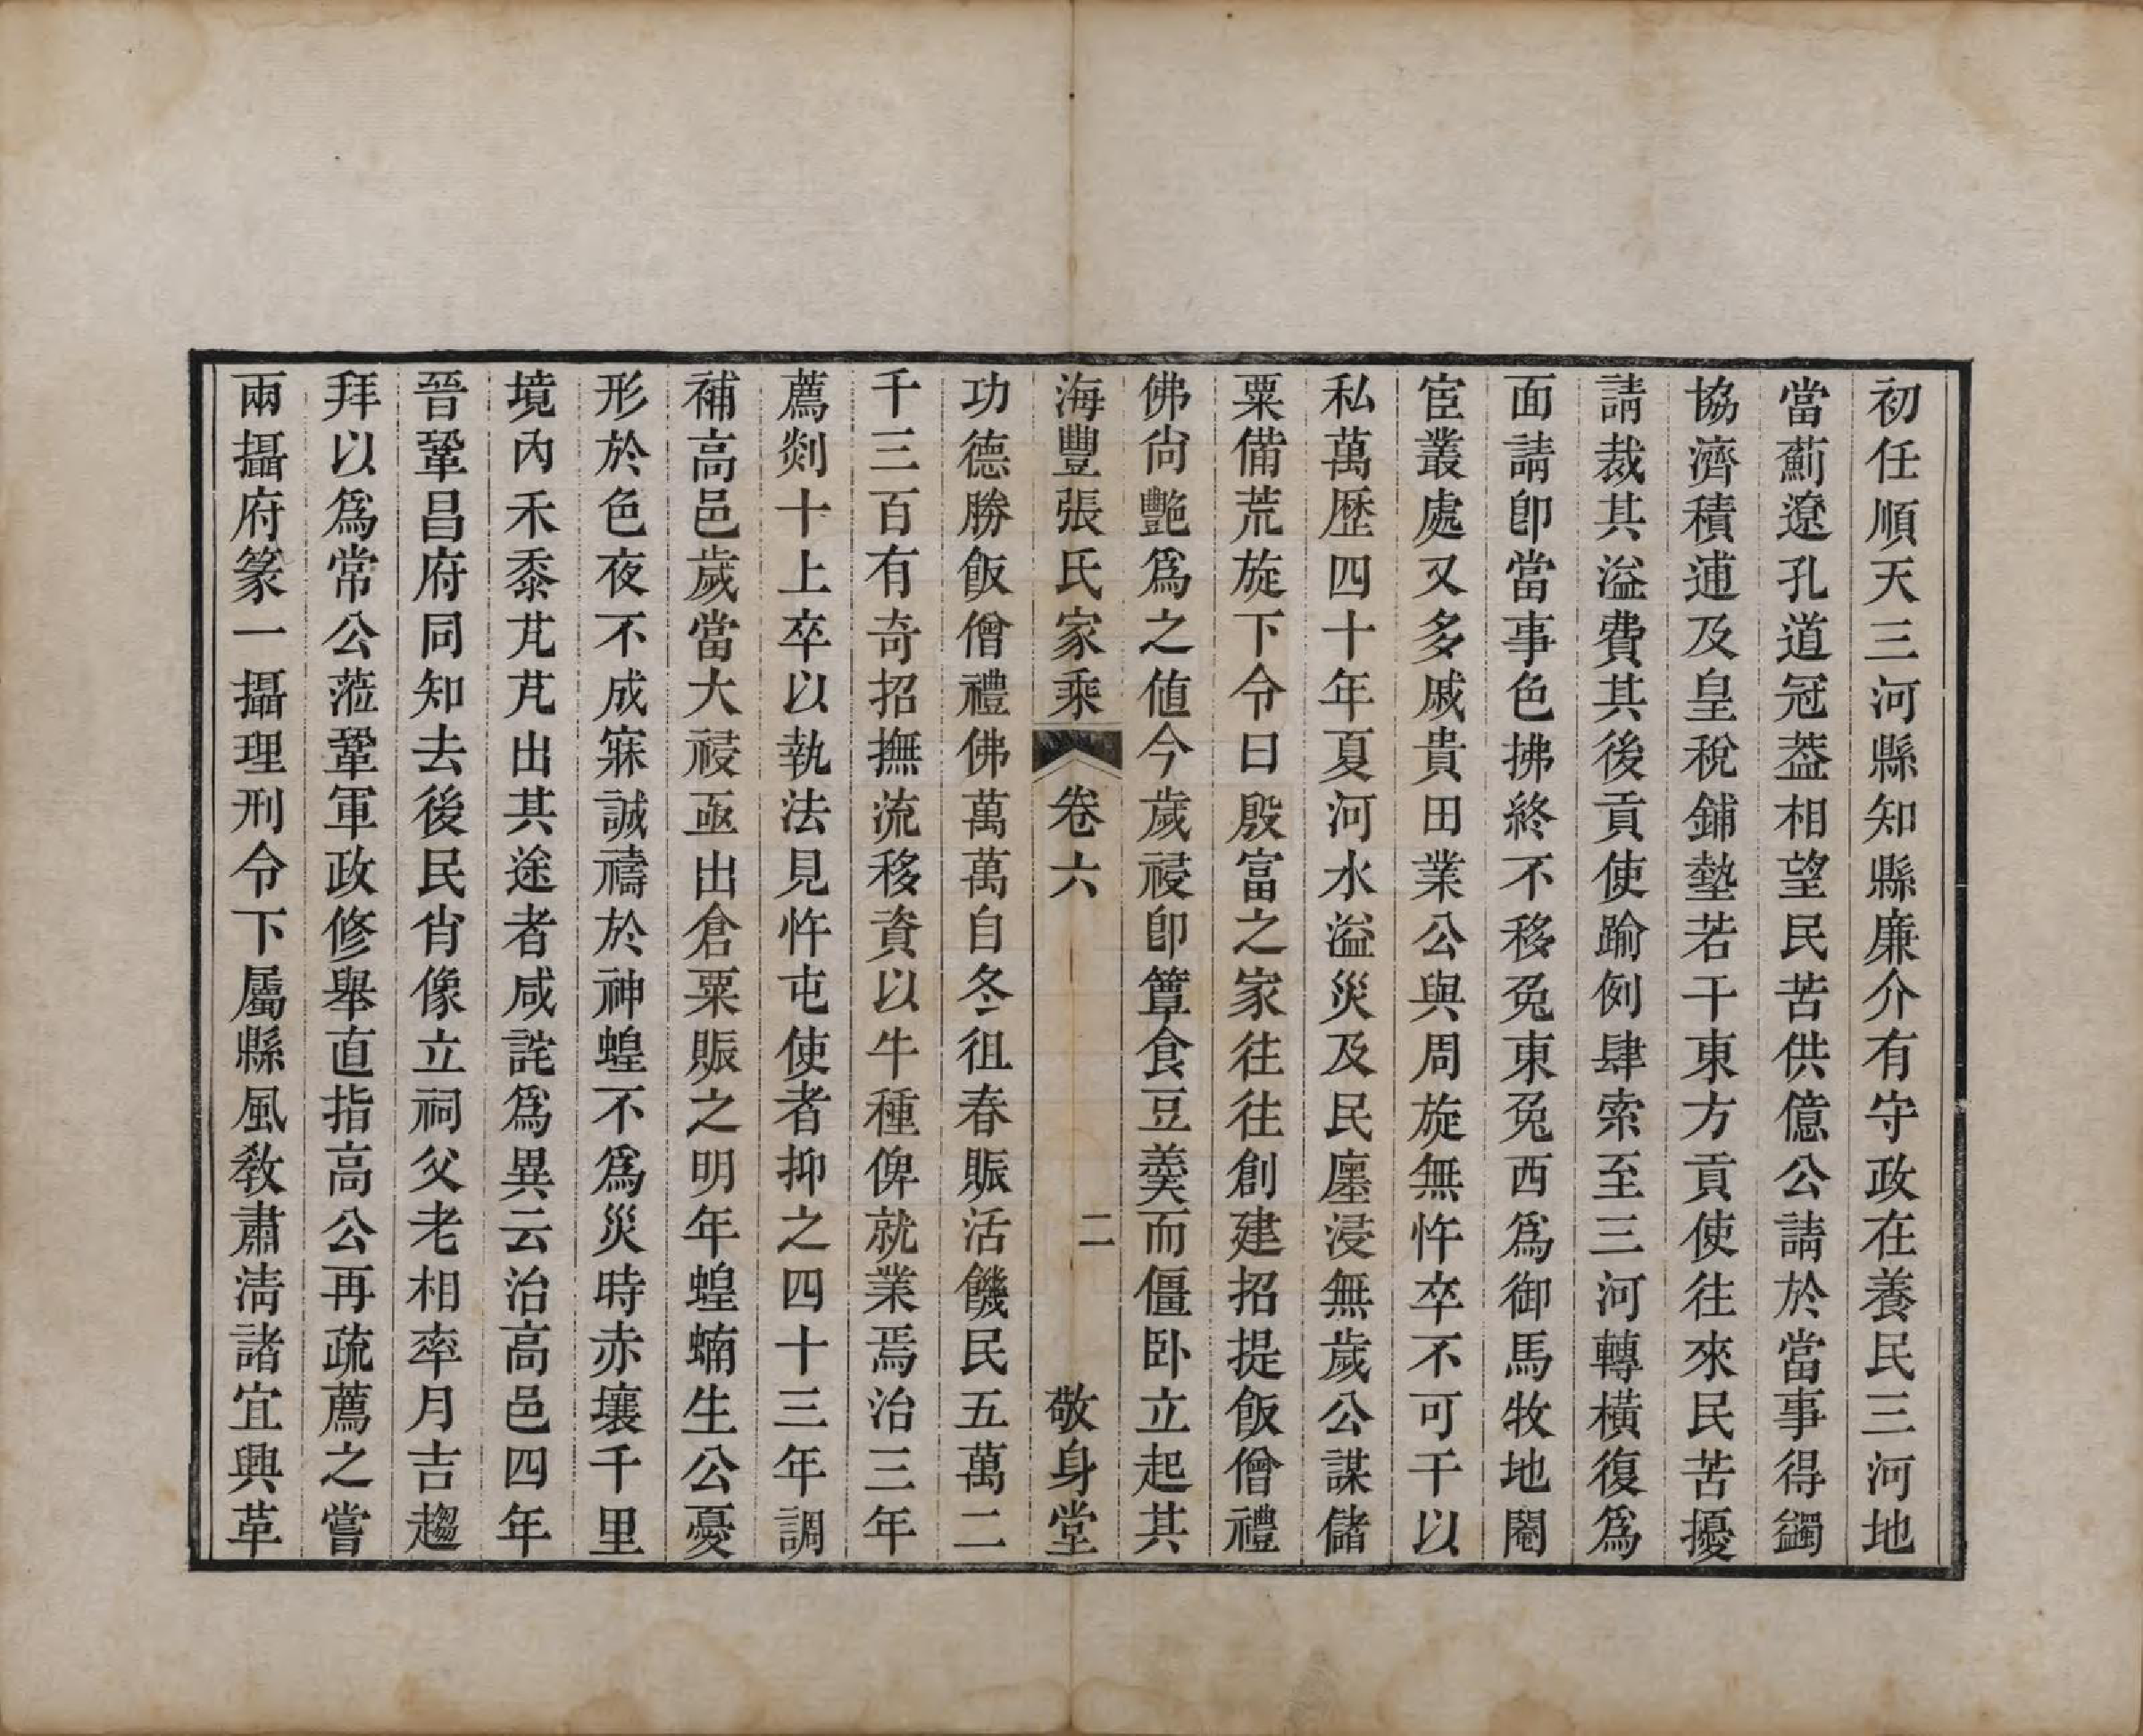 初任順天三河縣知縣廉介有守政在養民三河地
當薊遼孔道冠葢相望民苦供億公請於當事得蠲
協濟積逋及皇稅鋪墊若干東方貢使往來民苦擾
請裁其溢費其後貢使踰例肆索至三河轉橫復爲
面請卽當事色拂終不移兔東兔西爲御馬牧地閹
宦叢處又多戚貴田業公與周旋無忤卒不可干以
私萬歷四十年夏河水溢災及民廛浸無歲公謀儲
粟備荒旋下令曰殷富之家往往創建招提飯僧禮
佛尙艷爲之値今歲祲卽簞食豆羹而僵卧立起其
海豐張氏家乘 卷六 二 敬身堂
功德勝飯僧禮佛萬萬自冬徂春賑活饑民五萬二
千三百有奇招撫流移資以牛種俾就業焉治三年
薦剡十上卒以執法見忤屯使者抑之四十三年調
補高邑歲當大祲亟出倉粟賑之明年蝗蝻生公憂
形於色夜不成寐誠禱於神蝗不爲災時赤壤千里
境內禾黍芃芃出其途者咸詫爲異云治高邑四年
晉鞏昌府同知去後民肖像立祠父老相率月吉趨
拜以爲常公蒞鞏軍政修舉直指高公再疏薦之嘗
兩攝府篆一攝理刑令下屬縣風教肅淸諸宜興革